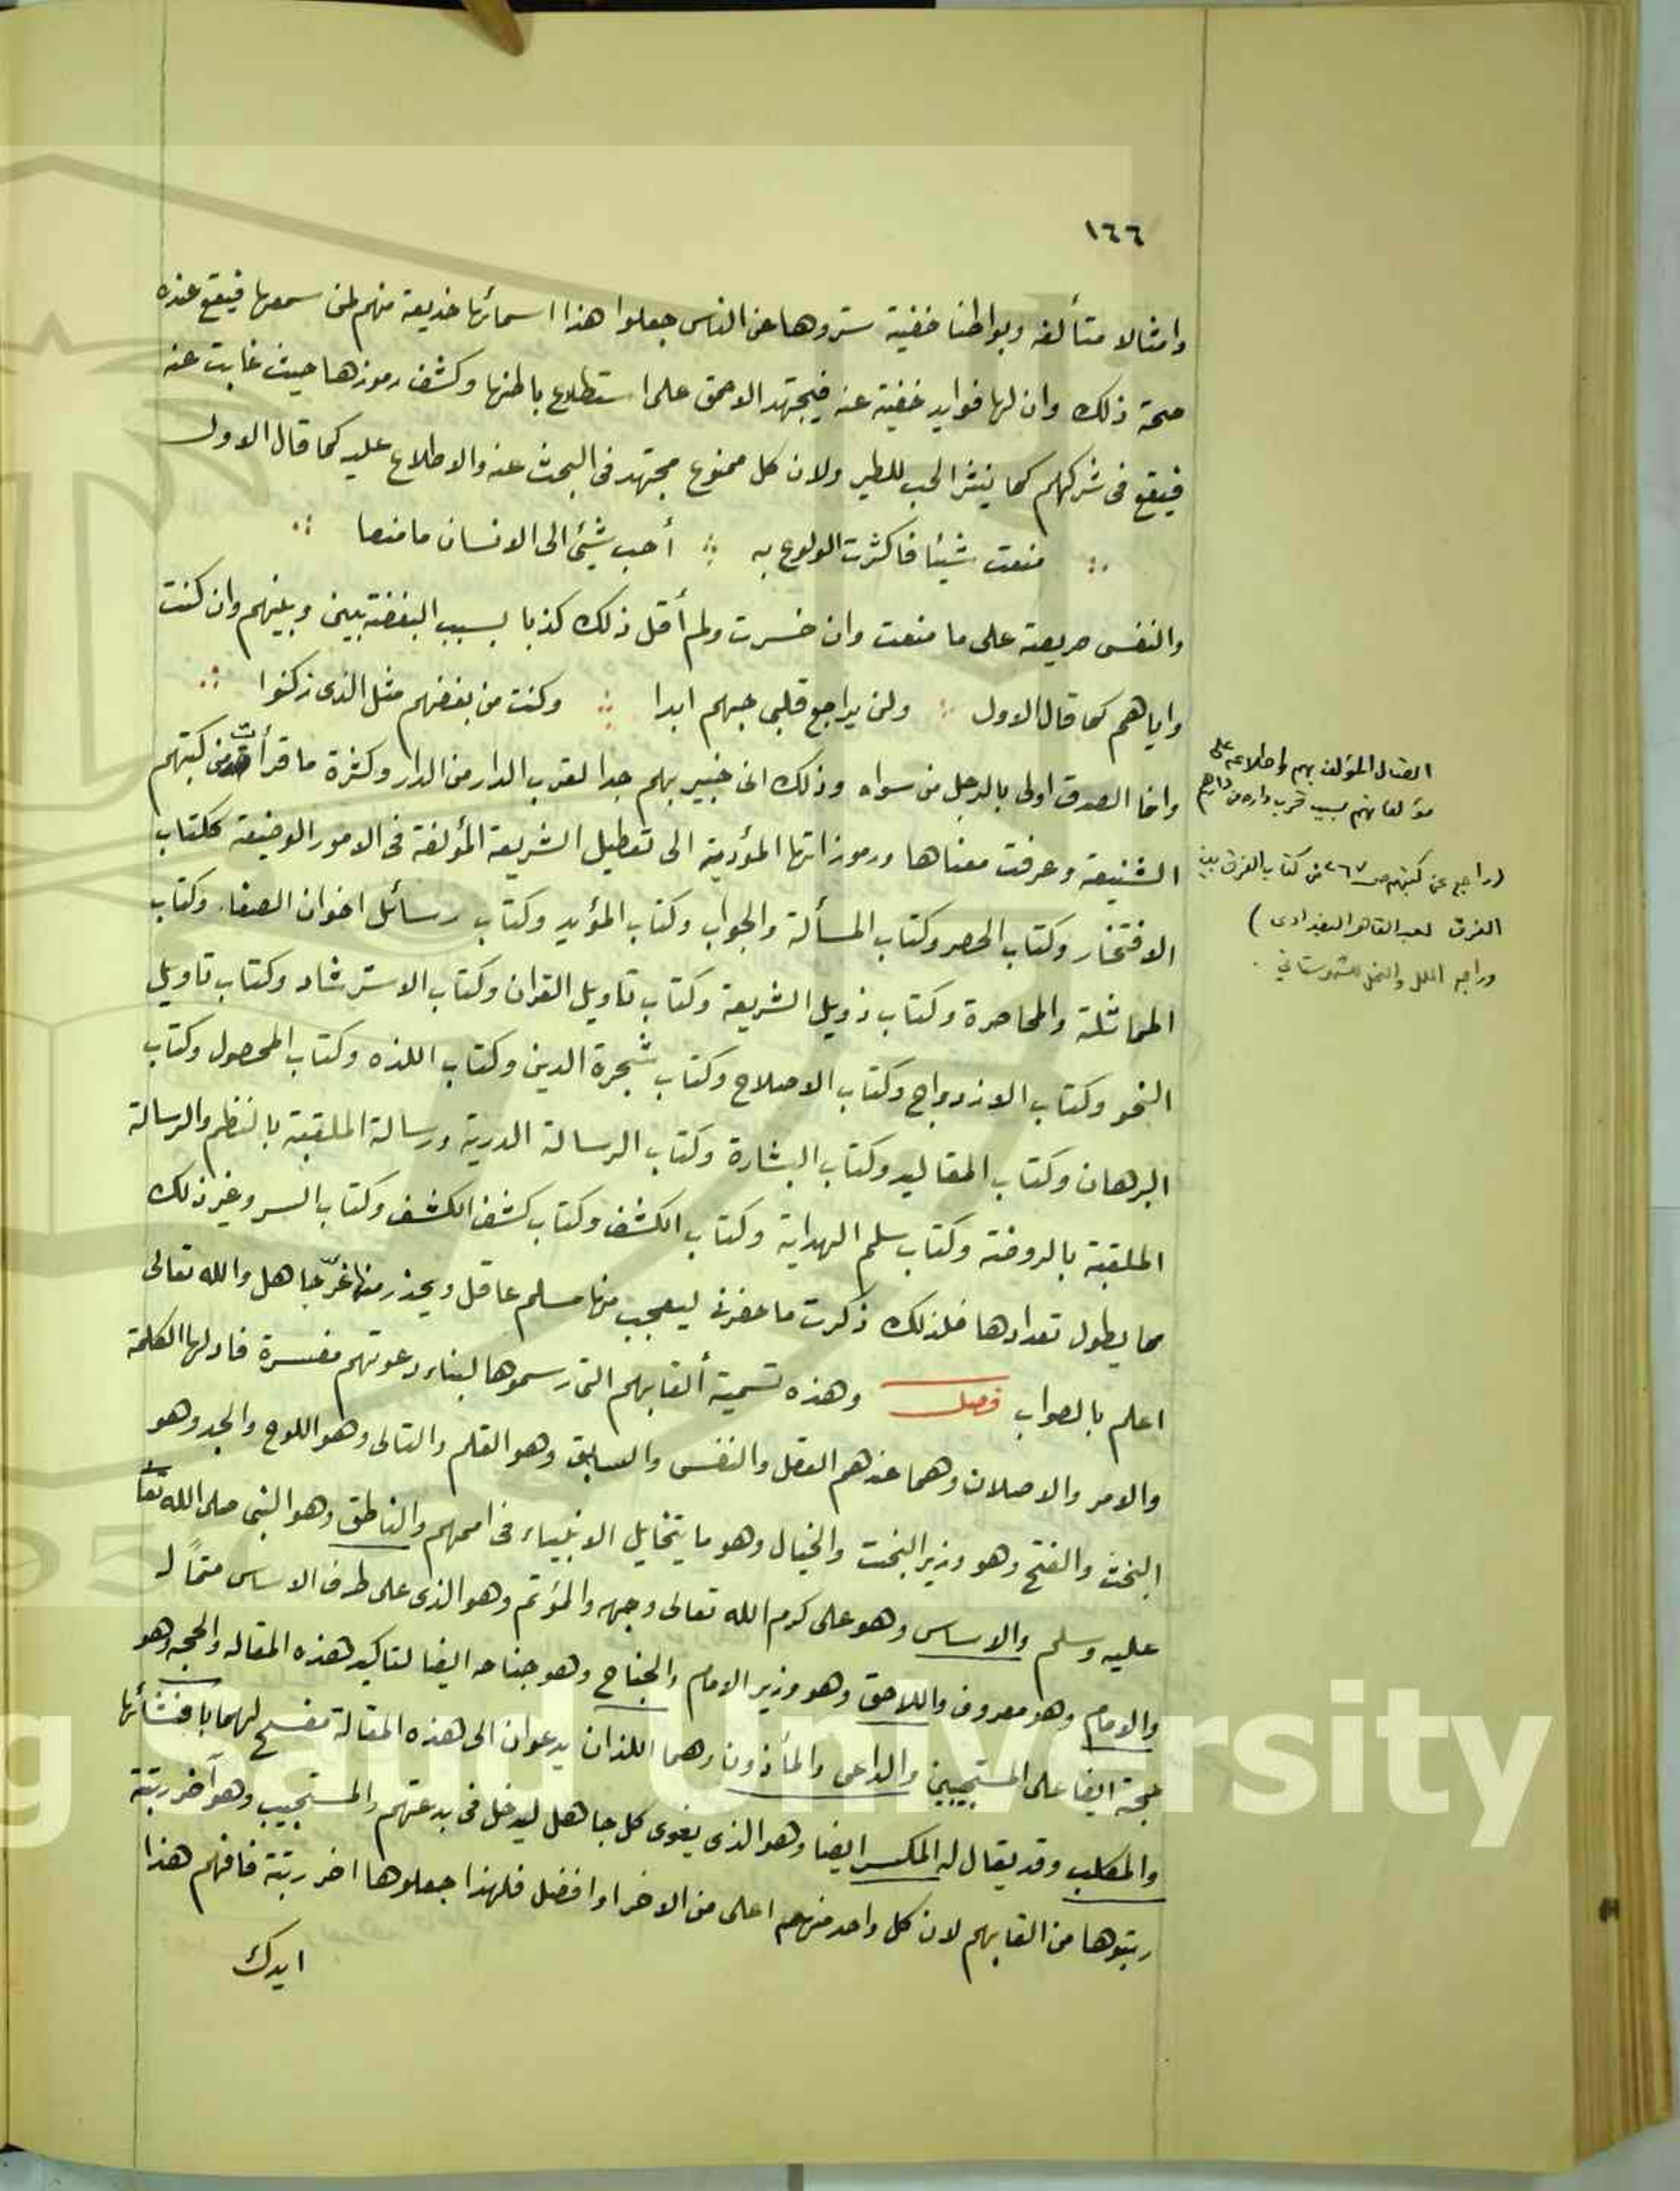 ١٦٦
وامثالا متألفة وبواطنا خفية ستروها عن الناس جعلوا هذا اسمائها خديعة منهم لمن سمعها فيقع عنده
صحة ذلك وان لها فوايد خفية عنه فيجتهد الاحمق على استطلاع باطنها وكشف رموزها حيث غابت عنه
فيقع فى شركهم كما ينثر الحب للطير ولان كل ممنوع مجتهد فى البحث عنه والاطلاع عليه كما قال الاول
منعت شيئا فاكثرت الولوع به ∴ أحب شيئ الى الانسان ما منعا ∴
والنفس حريصة على ما منعت وان خسرت ولم أقل ذلك كذبا بسبب البغضة بينى وبينهم وان كنت
واياهم كما قال الاول ∴ ولن يراجع قلبى حبهم ابدا ∴ وكنت من بغضهم مثل الذى زكنوا ∴
وانما الصدق اولى بالرجل من سواه وذلك انى خبير بهم جدا لقرب الدار من الدار وكثرة ما قرأت من كتبهم
الشنيعة وعرفت معناها ورموزاتها المؤدية الى تعطيل الشريعة المؤلفة فى الامور الوضيعة ككتاب
الافتخار وكتاب الحصر وكتاب المسألة والجواب وكتاب المؤيد وكتاب رسائل اخوان الصفاء وكتاب
المماثلة والمحاصرة وكتاب ذويل الشريعة وكتاب تاويل القران وكتاب الاسترشاد وكتاب تاويل
النحو وكتاب الازدواج وكتاب الاصلاح وكتاب شجرة الدين وكتاب اللذه وكتاب المحصول وكتاب
البرهان وكتاب المقاليد وكتاب البشارة وكتاب الرسالة الدرية ورسالة الملقبة بالنظم والرسالة
الملقبة بالروضة وكتاب سلم الهداية وكتاب الكشف وكتاب كشف الكشف وكتاب السر وغير ذلك
مما يطول تعدادها فلذلك ذكرت ما حضرنى ليعجب منها مسلم عاقل ويحذر منها غرّ جاهل والله تعالى
اعلم بالصواب فصل وهذه تسمية ألقابهم التى رسموها لبناء دعوتهم مفسرة فاولها الكلمة
والامر والاصلان وهما عندهم العقل والنفس والسابق وهو القلم والتالى وهو اللوح والجد وهو
البخت والفتح وهو وزير البخت والخيال وهو ما يتخايل الانبياء فى اممهم والناطق وهو النبى صلى الله تعا
عليه وسلم والاساس وهو على كرم الله تعالى وجهه والمؤتم وهو الذى على طرف الاساس متمًا له
والامام وهو معروف واللاحق وهو وزير الامام والجناح وهو جناحه ايضا لتاكيد هذه المقاله والحجه وهو
حجة ايضا على المستجيبين والداعى والمأذون وهما اللذان يدعوان الى هذه المقالة مفسح لهما بافشائها
والمكلب وقد يقال له المكسر ايضا وهو الذى يغوى كل جاهل ليدخل فى بدعتهم والمستجيب وهو آخر رتبة
رتبوها من القابهم لان كل واحد منهم اعلى من الاخر او افضل فلهذا جعلوها اخر رتبة فافهم هذا
ايدك
اتصال المؤلف بهم واطلاعه على
مؤلفاتهم بسبب قرب داره من دارهم
(راجع عن كتبهم ص ٢٦٧ من كتاب الفرق بين
الفرق لعبد القاهر البغدادى )
وراجع الملل والنحل للشهرستاني .
King Saud University